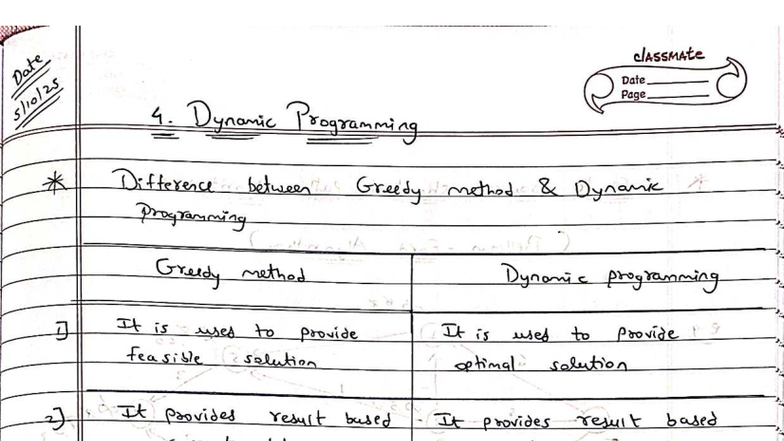 Date
5/10/25
classmate
Date
Page
4. Dynamic Programming
* Difference between Greedy method & Dynamic
programming
Greedy method Dynamic programming
1] It is used to provide It is used to provide
feasible solution optimal solution
2] It provides result based It provides result based